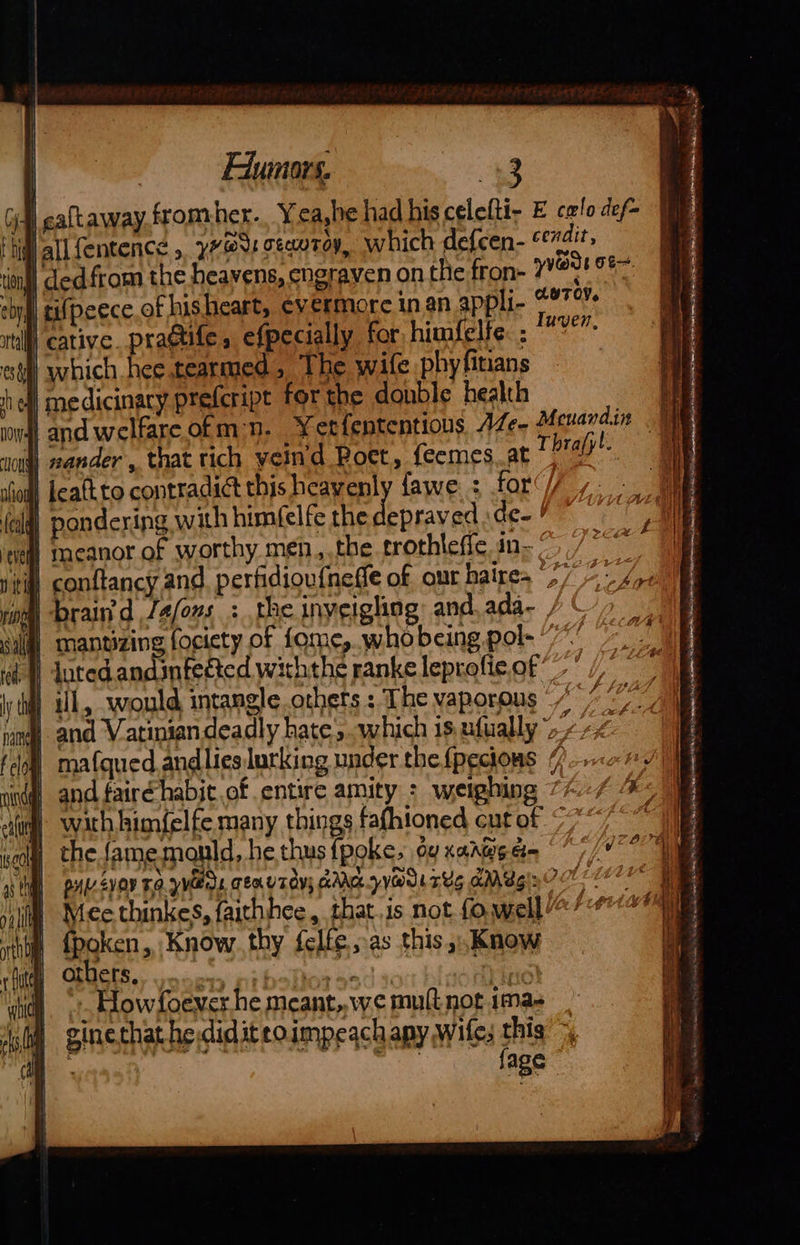 Humors. 3
cast away from her. Yea, he had his celesti-
all sentence, γνῶθι σεαυτόν, which descen-
ded from the heavens, engraven on the fron-
tispeece of his heart, evermore in an appli-
cative practise, especially for himselfe :
which hee tearmed, The wise physitians
medicinary prescript for the double health
and welfare of mꝫn. Yet sententious Me-
nander, that rich vein'd Poet, seemes at
least to contradict this heavenly sawe : for
pondering with himselfe the depraved de-
meanor of worthy men, the trothlesse in-
constancy and perfidiousnesse of our haire-
brain'd Iasons : the inveigling and ada-
mantizing society of some, who being pol-
luted and infected with the ranke leprosie of
ill, would intangle others : The vaporous
and Vatinian deadly hate, which is usually
masqued and lies lurking under the specious
and faire habit of entire amity : weighing
with himselfe many things fashioned out of
the same mould, he thus spoke, οὐ καλῶς εἰ-
ρημένον τὸ γνῶθι σεαυτόν, ἀλλὰ γνῶθι τοὺς ἄλλους:
Mee thinkes, faith hee, that is not so well
spoken, Know thy selfe, as this, Know
others.
Howsoever he meant, we must not ima-
gine that he did it to impeach any wise, this
sage
E cælo des-
cendit,
γνῶθι σε-
αυτόν.
Iuven.
Menand. in
Thrasyl.